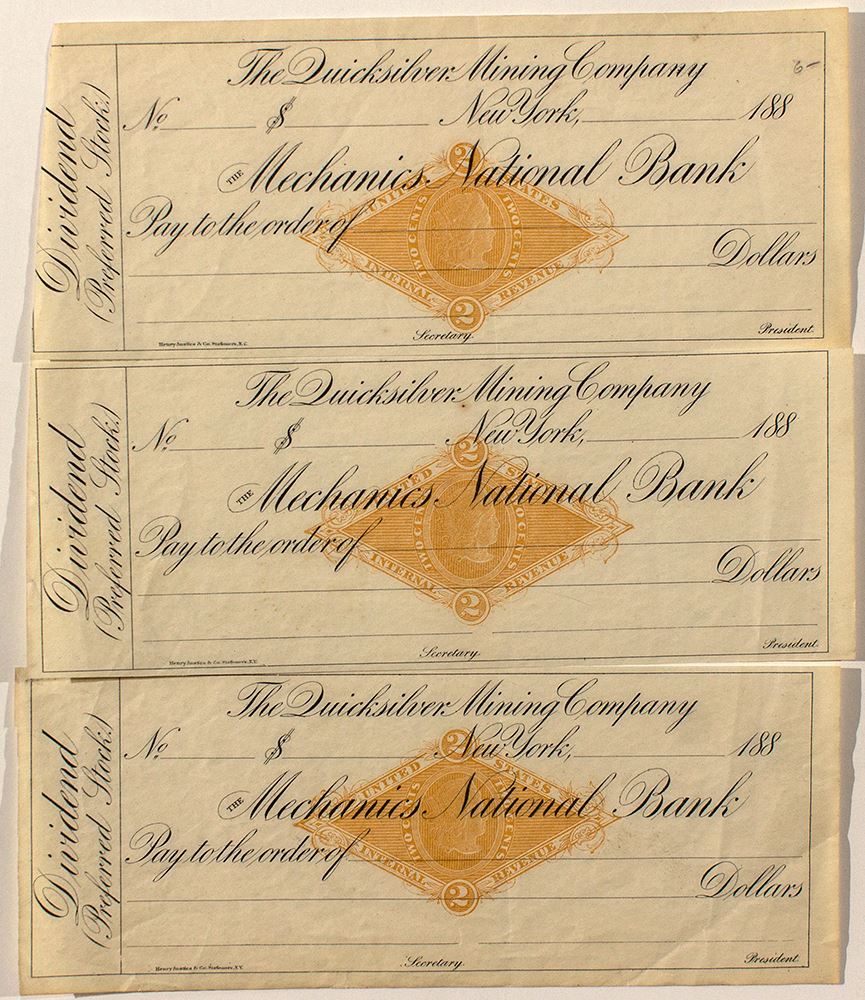 The Quicksilver Mining Company
6-
No $ New York, 188
THE Mechanics National Bank
Pay to the order of
Dollars
Secretary. President.
Dividend
(Preferred Stock.)
2
UNITED STATES
TWO CENTS TWO CENTS
INTERNAL REVENUE
2
Henry & Co. Stationers, N.Y.
The Quicksilver Mining Company
No $ New York, 188
THE Mechanics National Bank
Pay to the order of
Dollars
Secretary. President.
Dividend
(Preferred Stock.)
2
UNITED STATES
TWO CENTS TWO CENTS
INTERNAL REVENUE
2
Henry & Co. Stationers, N.Y.
The Quicksilver Mining Company
No $ New York, 188
THE Mechanics National Bank
Pay to the order of
Dollars
Secretary. President.
Dividend
(Preferred Stock.)
2
UNITED STATES
TWO CENTS TWO CENTS
INTERNAL REVENUE
2
Henry & Co. Stationers, N.Y.